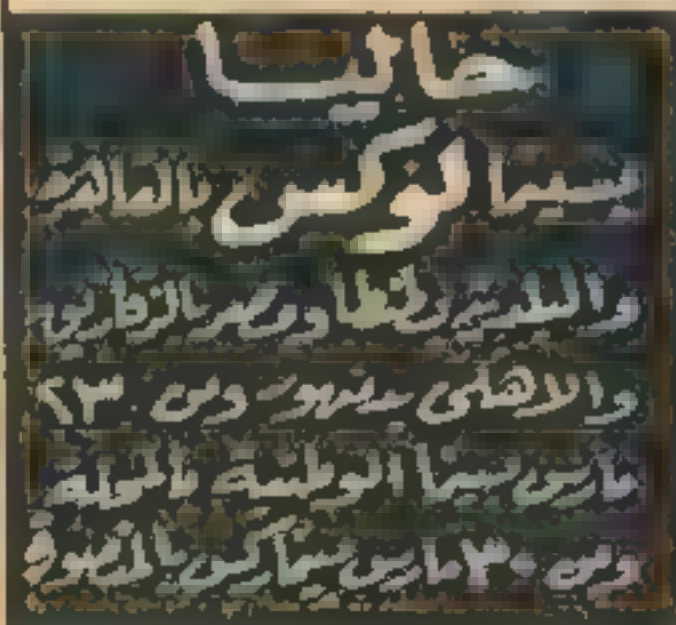 حاليا
بسينما لوكس بالقاهرة
والبلدية بطنطا ومصر بالزقازيق
والاهلى بدمنهور ومن ٢٣
مارس سينما الوطنية بالمحلة
ومن ٣٠ مارس سينما ركس بالمنصورة